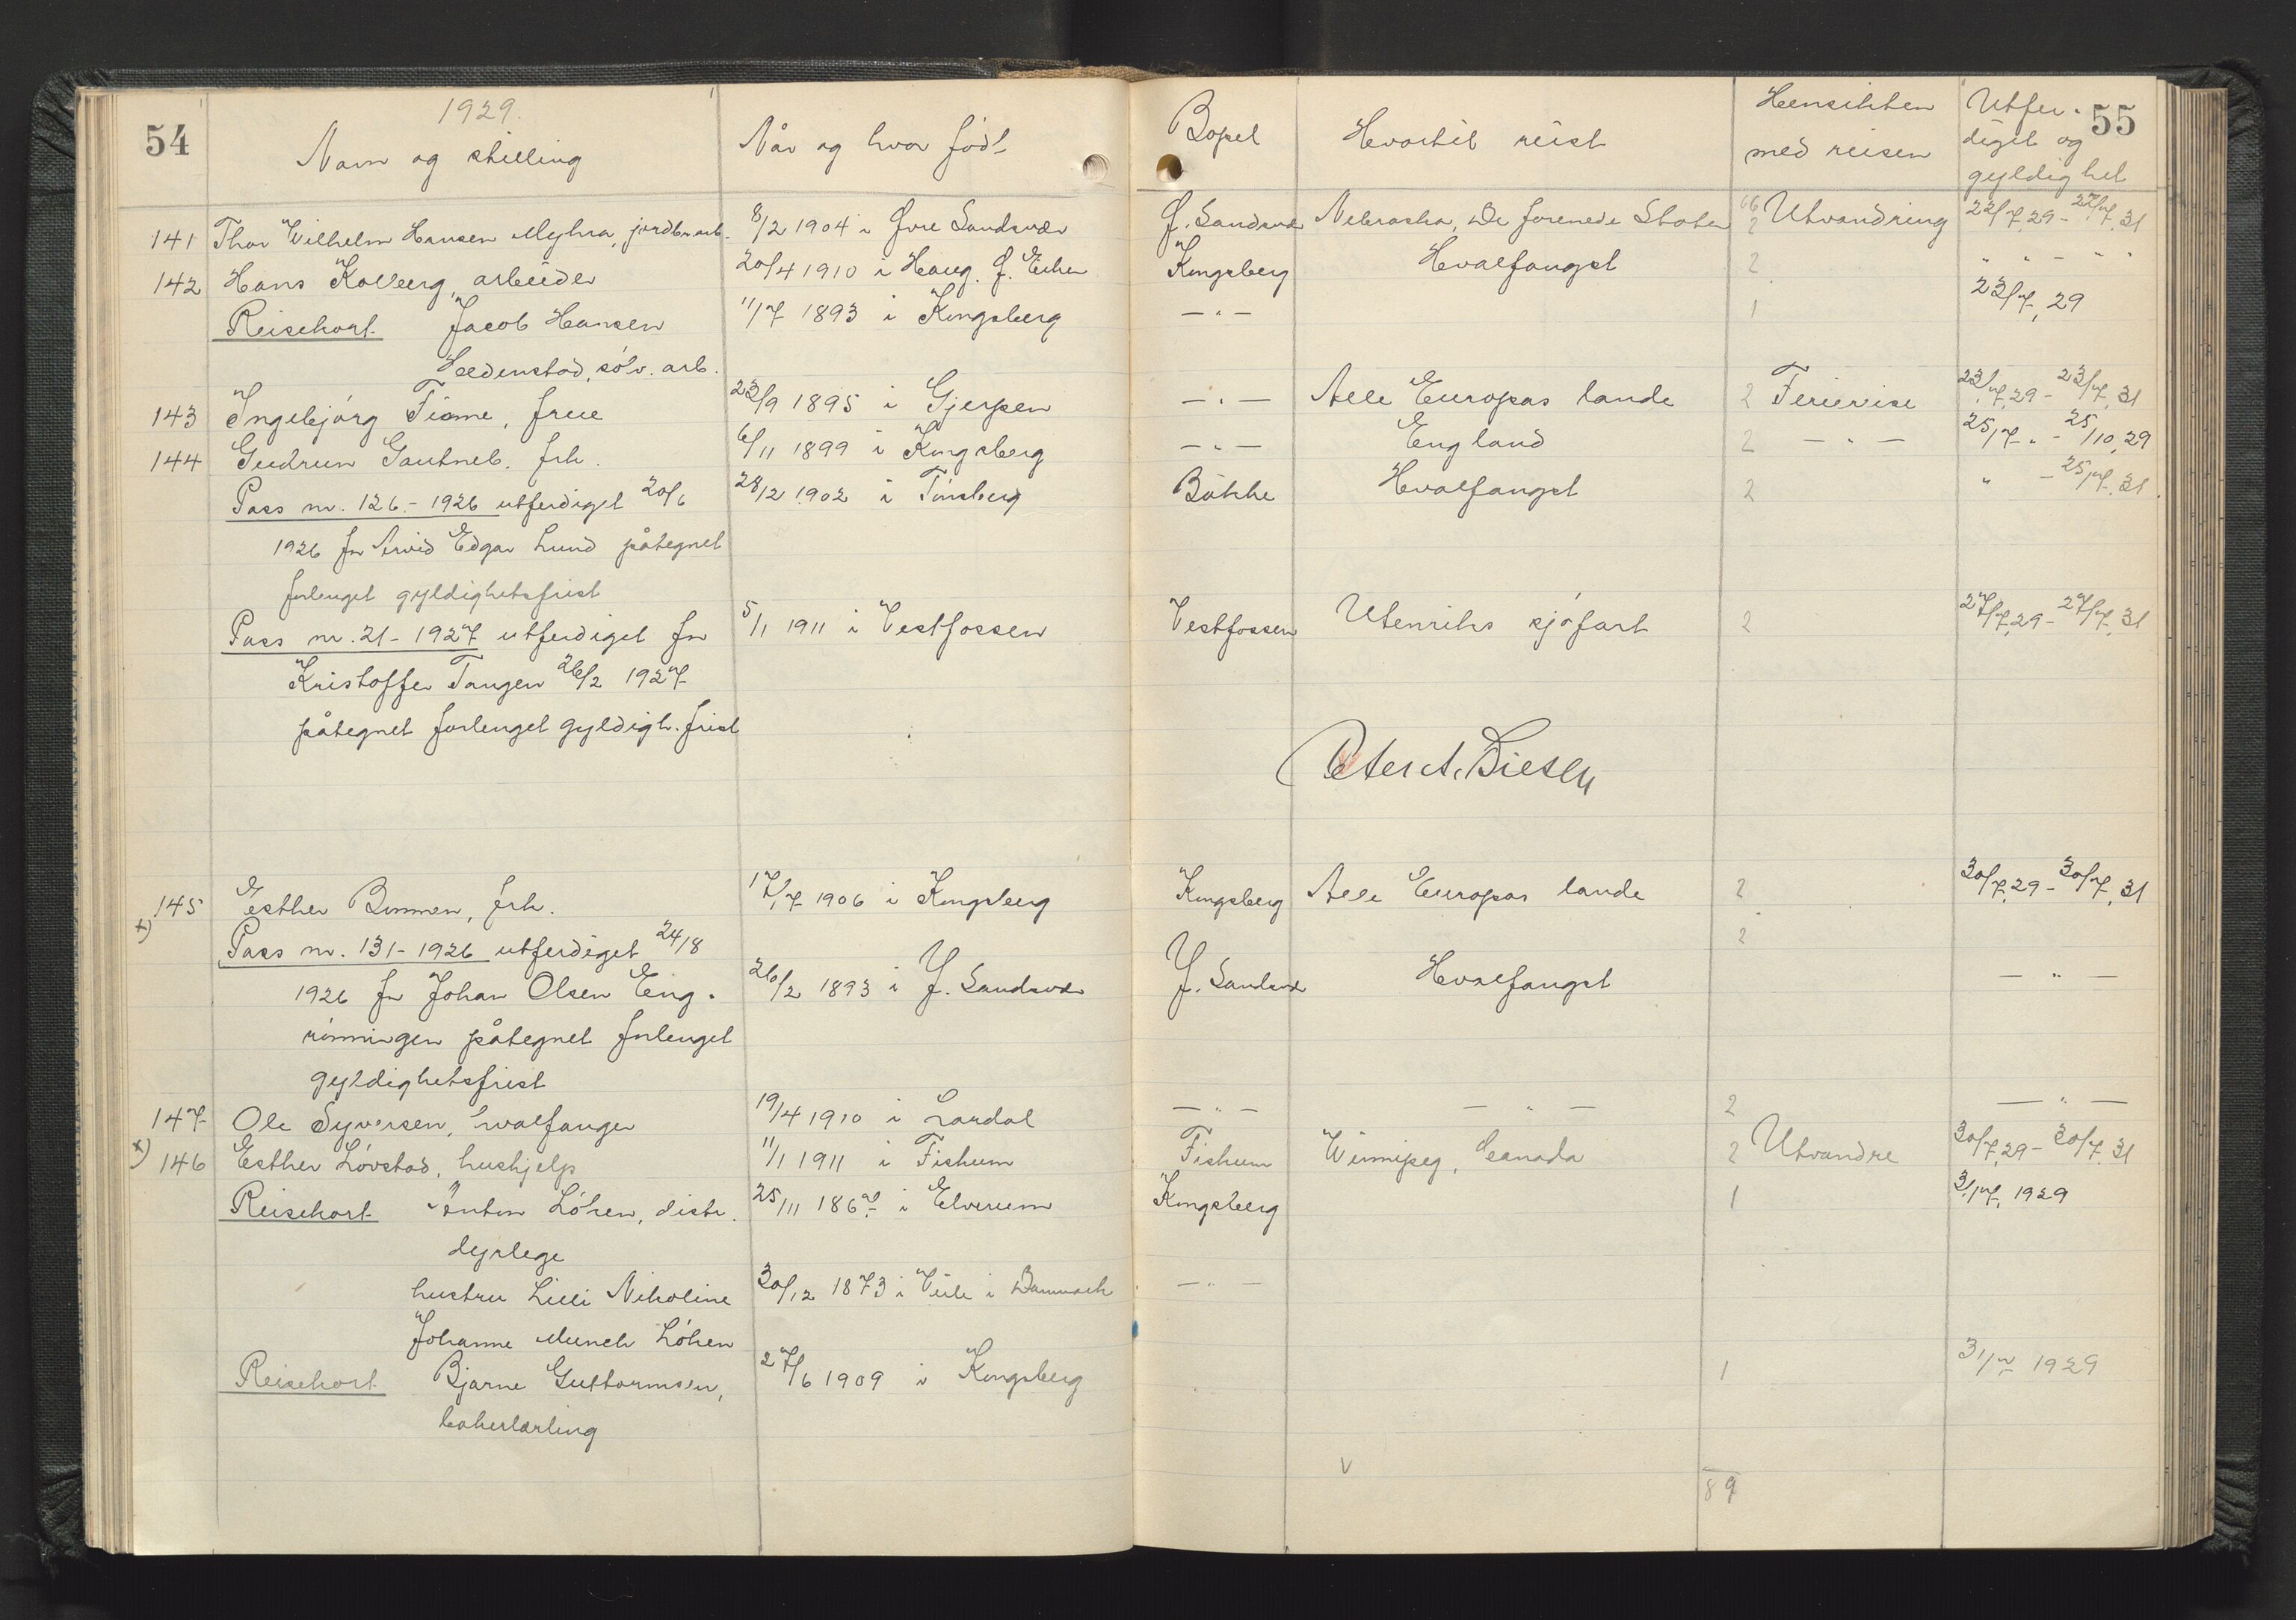 54
1929.
Navn og stilling
Når og hvor født
Bopel
Hvortil reist
Hensikten med reisen
Utfer-
diget og
gyldighet
55
141 Thor Wilhelm Hansen Myhra, jordbr.arb. 8/2 1904 i Øvre Sandsvær Ø. Sandsvær Nebraska, De forenede Stater 66 2 Utvandring 22/7.29 - 22/7.31
142 Hans Kolberg, arbeider 20/4 1910 i Haug. Ø. Eiker Kongsberg Hvalfangst 2 " " - " "
Reisekort Jacob Hansen 11/7 1893 i Kongsberg - " - 1 22/7.29
Hedenstad, sølv. arb.
143 Ingebjørg Tiome, frue 23/9 1895 i Gjerpen - " - Alle Europas lande 2 Feriereise 23/7.29 - 23/7.31
144 Gudrun Gautneb. frk. 6/11 1899 i Kongsberg - " - England 2 - " - 25/7. " - 25/10.29
Pass nr. 126 - 1926 utferdiget 20/6 28/2 1902 i Tønsberg Bakke Hvalfangst 2 " - 25/7.31.
1926 for Arvid Edgar Lund påtegnet
forlenget gyldighetsfrist
Pass nr. 21 - 1927 utferdiget for 5/1 1911 i Vestfossen Vestfossen Utenriks sjøfart 2 27/7.29 - 27/7.31
Kristoffer Tangen 26/2 1927
påtegnet forlenget gyldigh. frist
145 Esther Bommen, frk. 17/7 1906 i Kongsberg Kongsberg Alle Europas lande 2 30/7.29 - 30/7.31
x) Pass nr. 131 - 1926 utferdiget 24/8 2
1926 for Johan Olsen Eng- 26/2 1893 i Y. Sandsvær Y. Sandsvær Hvalfangst - " -
rønningen påtegnet forlenget
gyldighetsfrist
147 Ole Syversen, hvalfanger 19/4 1910 i Lardal - " - - " - 2 - " -
x) 146 Esther Løvstad, hushjelp 11/1 1911 i Fiskum Fiskum Winnipeg, Canada 2 Utvandre 30/7.29 - 30/7.31
Reisekort Anton Løken, distr. 25/11 1867 i Elverum Kongsberg 1 31/7. 1929
dyrlege
hustru Lilli Nikoline 30/12 1873 i Veile i Danmark - " -
Johanne Munch Løken
Reisekort Bjarne Guttormsen, 27/6 1909 i Kongsberg 1 31/7 1929
bakerlærling
v
89